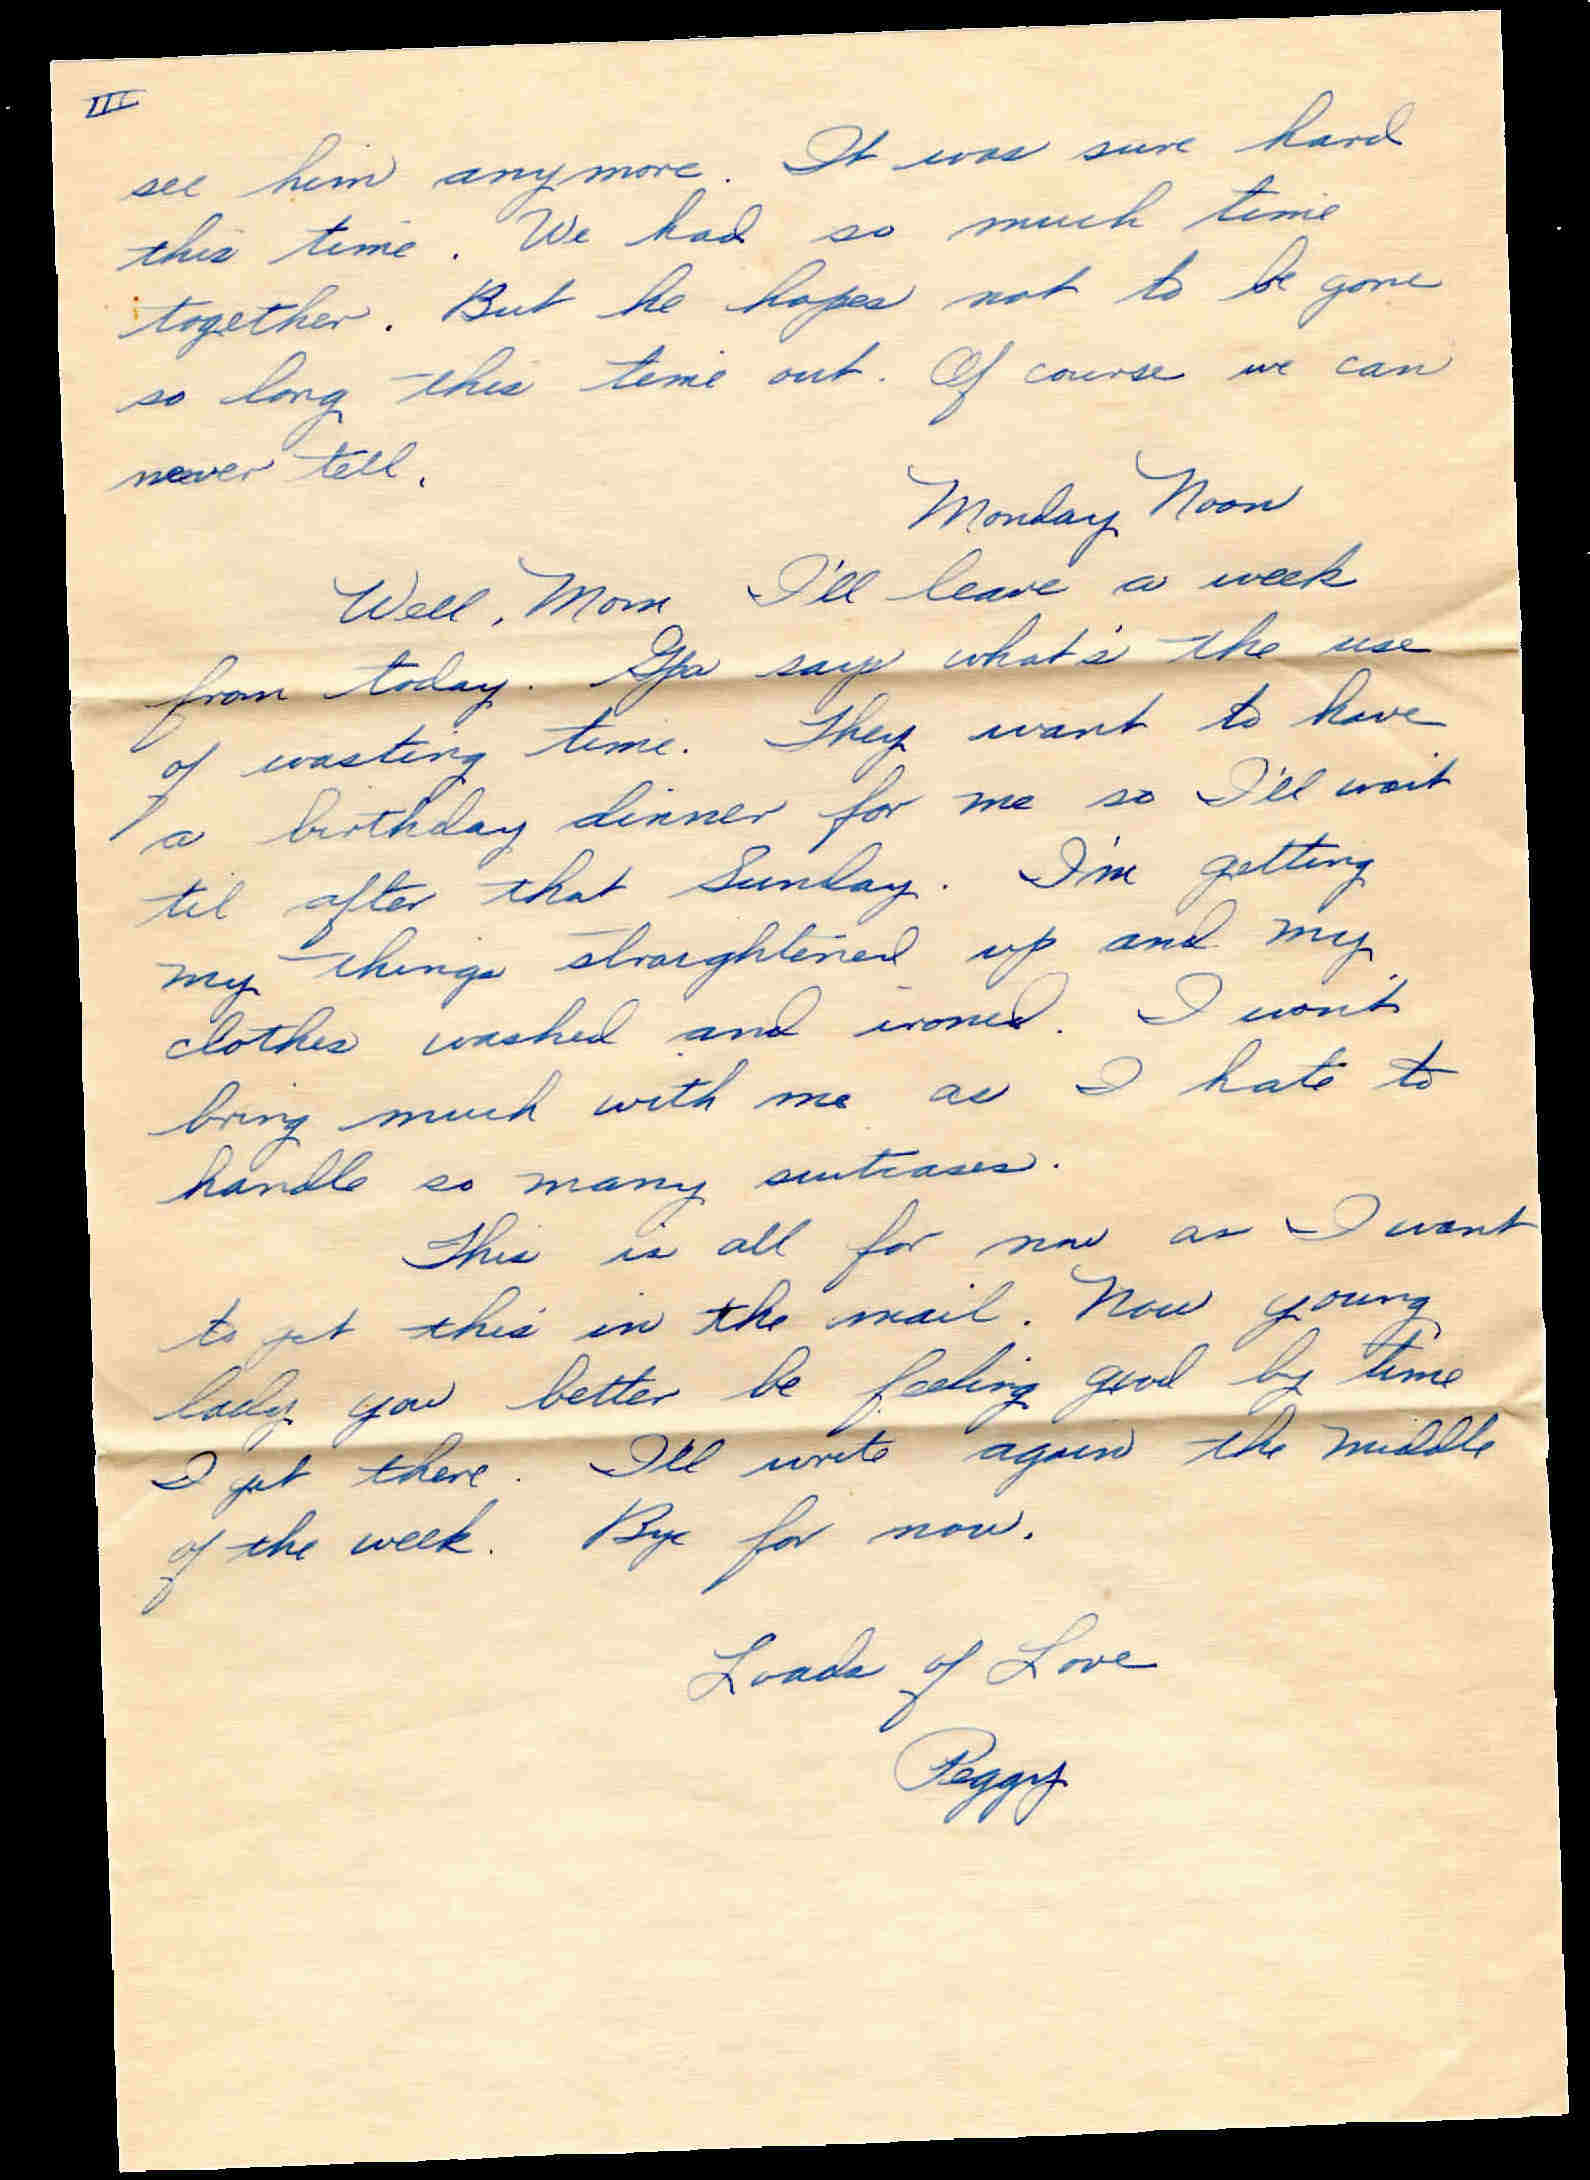 III
see him anymore. It was sure hard
this time. We had so much time
together. But he hopes not to be gone
so long this time out. Of course we can
never tell.
Monday Noon
Well, Mom I'll leave a week
from today. Gpa says what's the use
of wasting time. They want to have
a birthday dinner for me so I'll wait
til after that Sunday. I'm getting
my things straightened up and my
clothes washed and ironed. I won't
bring much with me as I hate to
handle so many suitcases.
This is all for now as I want
to get this in the mail. Now young
lady you better be feeling good by time
I get there. I'll write again the middle
of the week. Bye for now.
Loads of Love
Peggy